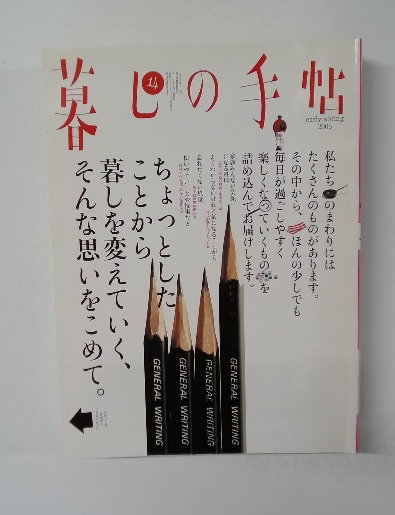 暮しの手帖
14
early spring
2005
私たちのまわりには
たくさんのものがあります。
その中から、ほんの少しでも
毎日が過ごしやすく
楽しくなっていくものを
詰め込んでお届けします。
ちょっとした
ことから
暮しを変えていく、
そんな思いをこめて。
GENERAL WRITING
GENERAL WRITING
GENERAL WRITING
GENERAL WRITING